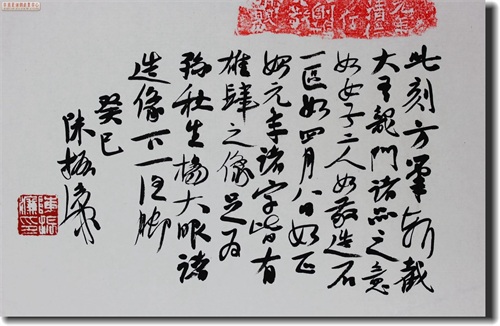 此刻方筆斬截
大有龍門諸品之意
如女子二人如敬造石
一區如四月八日如正
始元年諸字皆有
雄肆之像足為
孫秋生楊大眼諸
造像下一注腳
癸巳
陳振濂
陳振濂印